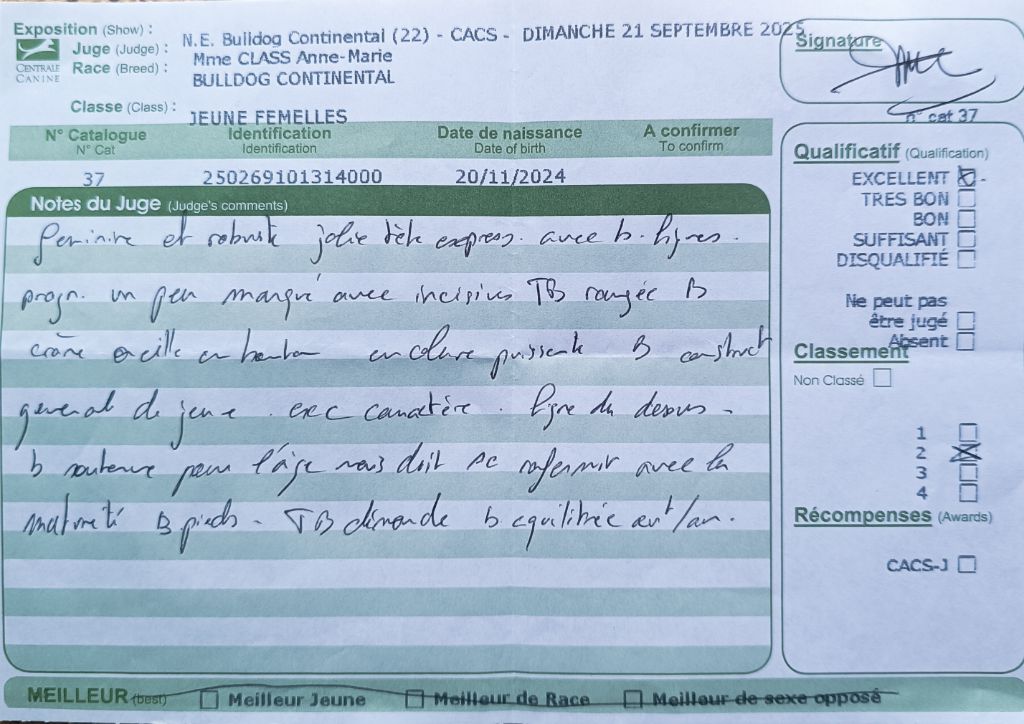 Exposition (Show) : N.E. Bulldog Continental (22) - CACS - DIMANCHE 21 SEPTEMBRE 2025
CENTRALE CANINE
Juge (Judge) : Mme CLASS Anne-Marie
Race (Breed) : BULLDOG CONTINENTAL
Classe (Class) : JEUNE FEMELLES
N° Catalogue Identification Date de naissance A confirmer
N° Cat Identification Date of birth To confirm
37 250269101314000 20/11/2024
Notes du Juge (Judge's comments)
feminine et robuste jolie tête express. avec b. lignes.
progn. un peu marqué avec incisives TB rangée B
crâne oreille en bouton encolure puissante B construct
general de jeune. exc caractère. ligne du dessus -
b soutenue pour l'âge mais doit se raffermir avec la
maturité B pieds - TB démarche b equilibrée avt/arr.
Signature
n° cat 37
Qualificatif (Qualification)
EXCELLENT
TRES BON
BON
SUFFISANT
DISQUALIFIÉ
Ne peut pas
être jugé
Absent
Classement
Non Classé
1
2
3
4
Récompenses (Awards)
CACS-J
MEILLEUR (best) Meilleur Jeune Meilleur de Race Meilleur de sexe opposé